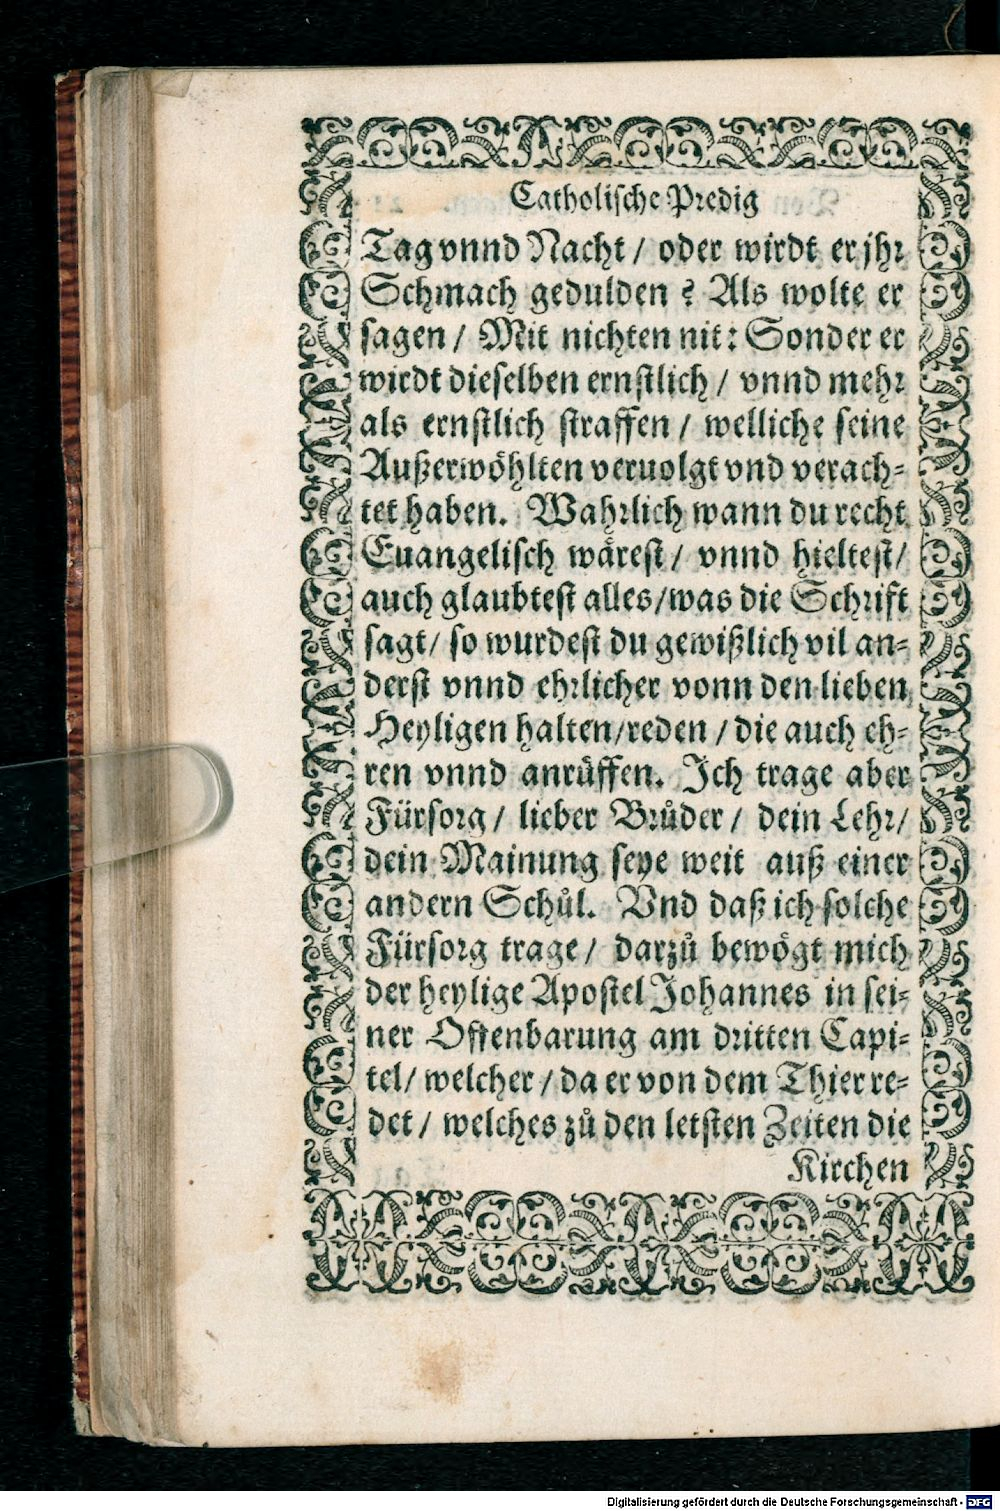 Catholische Predig
Tag vnnd Nacht / oder wirdt er jhr
Schmach gedulden ? Als wolte er
sagen / Mit nichten nit: Sonder er
wirdt dieselben ernstlich / vnnd mehr
als ernstlich straffen / welliche seine
Außerwöhlten veruolgt vnd verach-
tet haben. Wahrlich wann du recht
Euangelisch wärest / vnnd hieltest /
auch glaubtest alles / was die Schrift
sagt / so wurdest du gewißlich vil an-
derst vnnd ehrlicher vonn den lieben
Heyligen halten / reden / die auch eh-
ren vnnd anrüffen. Ich trage aber
Fürsorg / lieber Brůder / dein Lehr /
dein Mainung seye weit auß einer
andern Schůl. Vnd daß ich solche
Fürsorg trage / darzů bewögt mich
der heylige Apostel Johannes in sei-
ner Offenbarung am dritten Capi-
tel / welcher / da er von dem Thier re-
det / welches zů den letsten Zeiten die
Kirchen
Digitalisierung gefördert durch die Deutsche Forschungsgemeinschaft - DFG